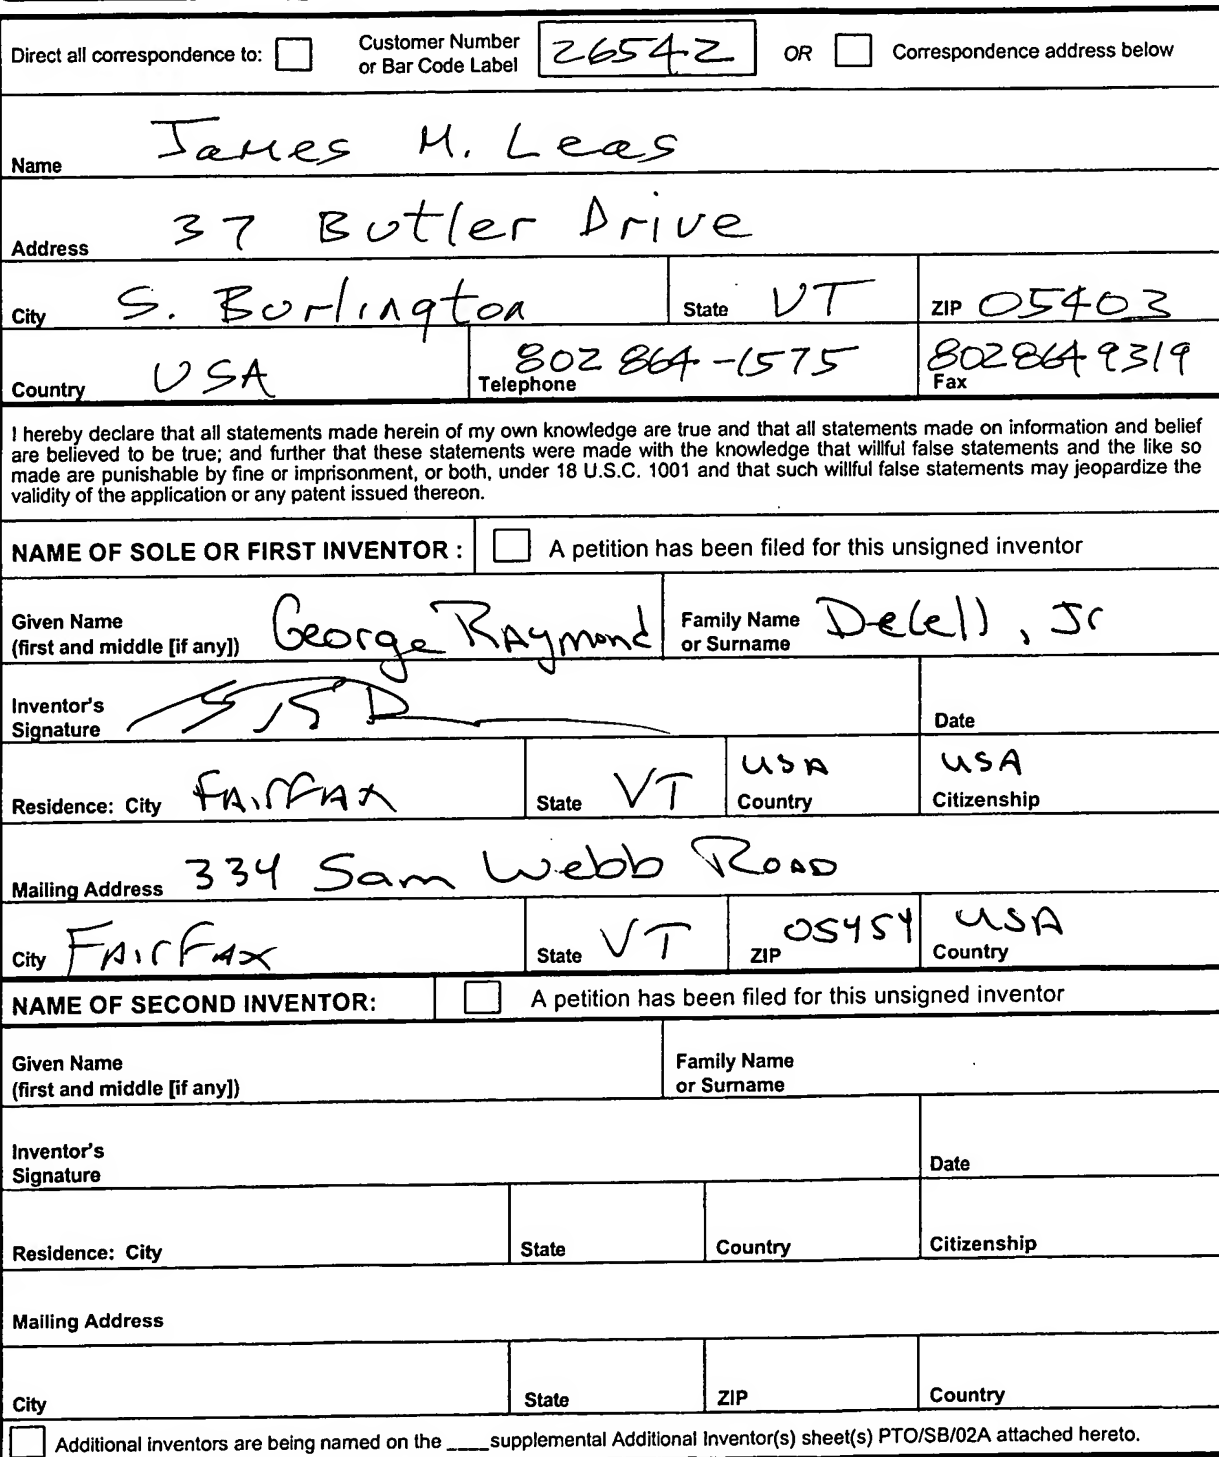 Direct all correspondence to: Customer Number or Bar Code Label 26542 OR Correspondence address below
Name James M. Leas
Address 37 Butler Drive
City S. Burlington State VT ZIP 05403
Country USA Telephone 802 864-1575 Fax 802 864 9319
I hereby declare that all statements made herein of my own knowledge are true and that all statements made on information and belief
are believed to be true; and further that these statements were made with the knowledge that willful false statements and the like so
made are punishable by fine or imprisonment, or both, under 18 U.S.C. 1001 and that such willful false statements may jeopardize the
validity of the application or any patent issued thereon.
NAME OF SOLE OR FIRST INVENTOR : A petition has been filed for this unsigned inventor
Given Name
(first and middle [if any]) George Raymond Family Name
or Surname , Jr
Inventor's
Signature Date
Residence: City FAIrFAx State VT Country USA Citizenship USA
Mailing Address 334 Sam Webb ROAD
City FAIrFAx State VT ZIP 05454 Country USA
NAME OF SECOND INVENTOR: A petition has been filed for this unsigned inventor
Given Name
(first and middle [if any]) Family Name
or Surname
Inventor's
Signature Date
Residence: City State Country Citizenship
Mailing Address
City State ZIP Country
Additional inventors are being named on the ____supplemental Additional Inventor(s) sheet(s) PTO/SB/02A attached hereto.